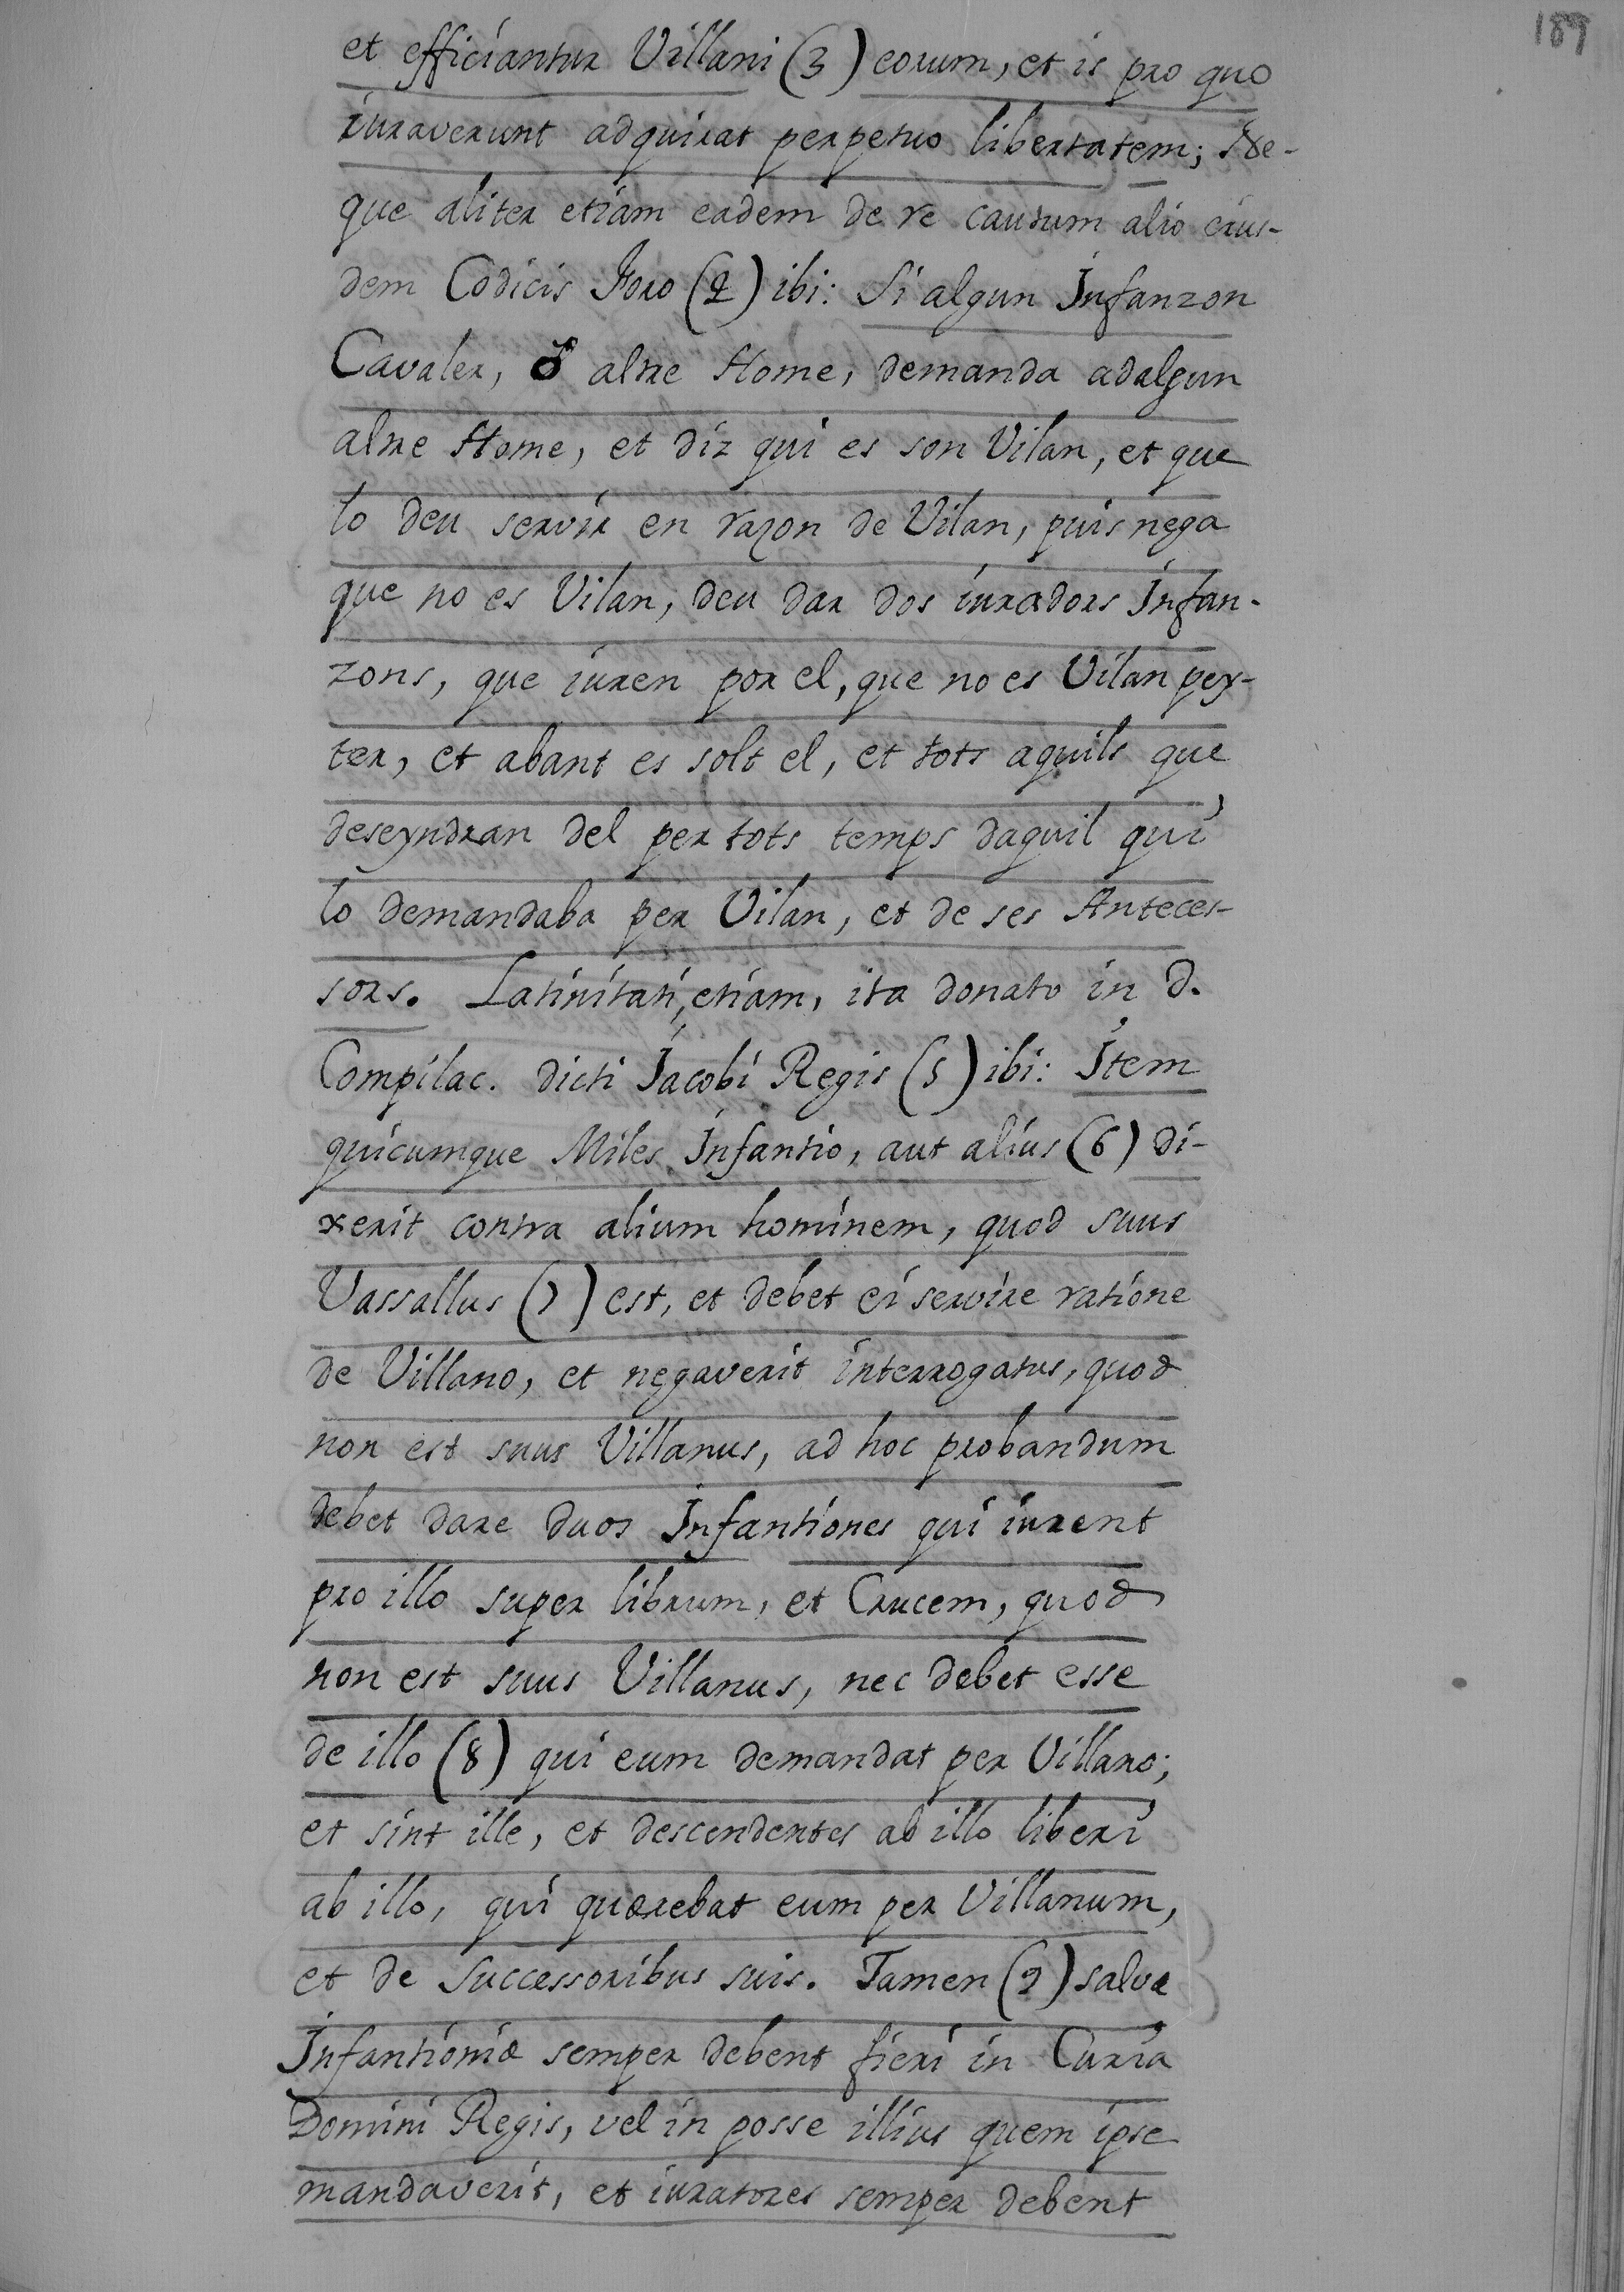 189
et efficiantur Villani (3) eorum, et is pro quo
iuraverunt adquirat perpetuo libertatem; Ne-
que aliter etiam eadem de re cautum alio eius-
dem Codicis Foro (2) ibi: Si algun Infanzon
Cavaler, o altre Home, demanda adalgun
altre Home, et diz qui es son Vilan, et que
lo deu servir en razon de Vilan, puis nega
que no es Vilan, deu dar dos iuradors Infan-
zons, que iuren por el, que no es Vilan pey-
ter, et abant es solt el, et tots aquils que
deseyndran del per tots temps daquil qui
lo demandaba per Vilan, et de ses Anteces-
sors. Latinitati, etiam, ita donato in d.
Compilac. dicti Jacobi Regis (5) ibi: Item
quicumque Miles Infantio, aut alius (6) di-
xerit contra alium hominem, quod suus
Vassallus (7) est, et debet ei servire ratione
de Villano, et negaverit interrogatus, quod
non est suus Villanus, ad hoc probandum
debet dare duos Infantiones qui iurent
pro illo super librum, et Crucem, quod
non est suus Villanus, nec debet esse
de illo (8) qui eum demandat per Villano;
et sint ille, et descendentes ab illo liberi
ab illo, qui quærebat eum per Villanum,
et de successoribus suis. Tamen (9) salvæ
Infantioniæ semper debent fieri in Curia
Domini Regis, vel in posse illius quem ipse
mandaverit, et iuratores semper debent